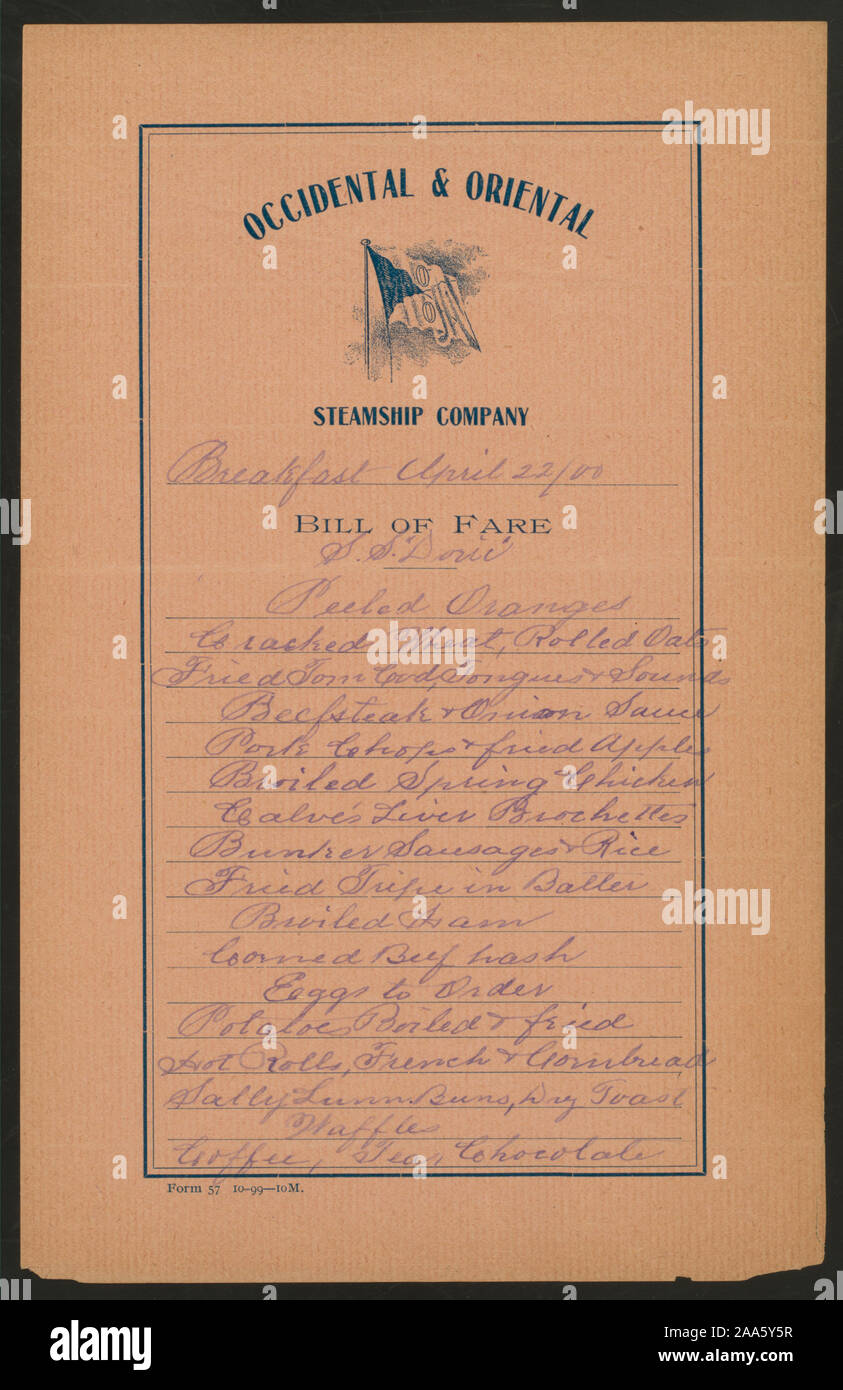 OCCIDENTAL & ORIENTAL
O
O
STEAMSHIP COMPANY
Breakfast April 22/00
BILL OF FARE
S.S. "Doric"
Peeled Oranges
Cracked Wheat, Rolled Oats
Fried Tom Cod, Tongues & Sounds
Beefsteak & Onion Sauce
Pork Chops & fried Apples
Broiled Spring Chicken
Calve's Liver Brochettes
Sausages & Rice
Fried Tripe in Batter
Broiled Ham
Corned Beef hash
Eggs to Order
Potatoes Boiled & fried
Hot Rolls, French & Cornbread
Sally Lunn Buns, Dry Toast
Waffles
Coffee, Tea, Chocolate
Form 57 10-99—10M.
alamy
alamy
alamy
alamy
Image ID: 2AA5Y5R
www.alamy.com